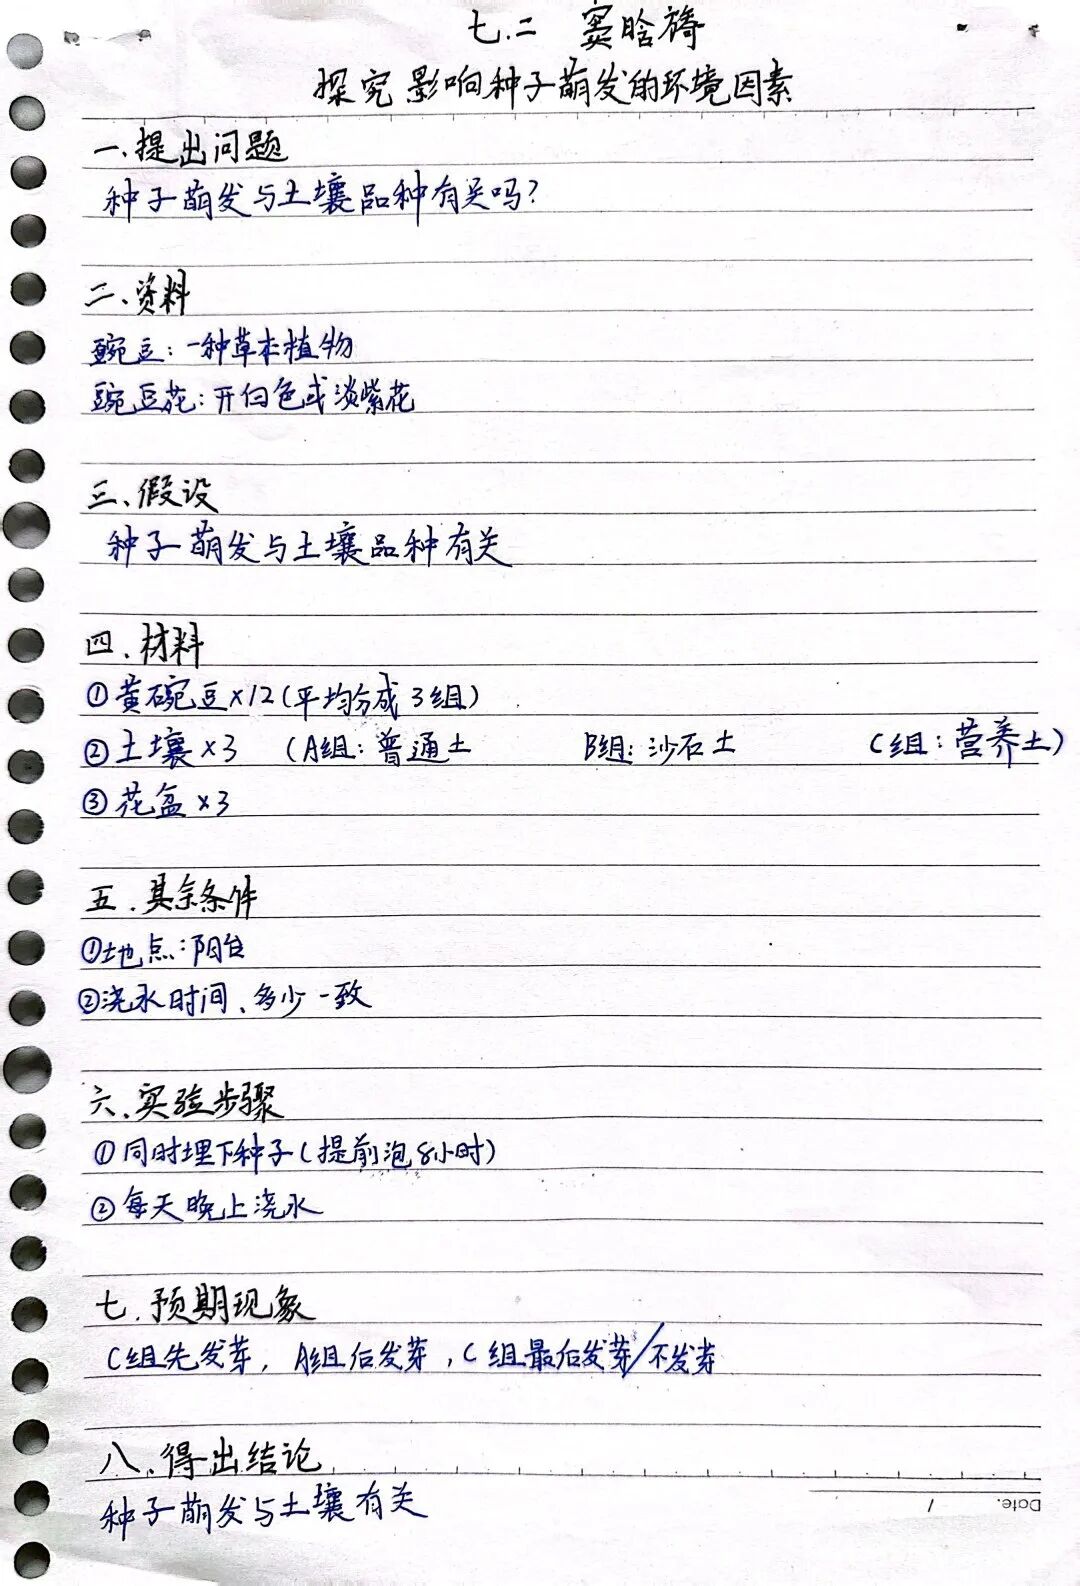 七.二 窦晗旖
探究影响种子萌发的环境因素
一.提出问题
种子萌发与土壤品种有关吗?
二、资料
豌豆:一种草本植物
豌豆花:开白色或淡紫花
三、假设
种子萌发与土壤品种有关
四.材料
①黄碗豆×12(平均分成3组)
②土壤×3 (A组:普通土 B组:沙石土 C组:营养土)
③花盆×3
五.其余条件
①地点:阳台
②浇水时间、多少一致
六.实验步骤
①同时埋下种子(提前泡8小时)
②每天晚上浇水
七.预期现象
C组先发芽,A组后发芽,C组最后发芽/不发芽
八.得出结论
种子萌发与土壤有关
Date. /